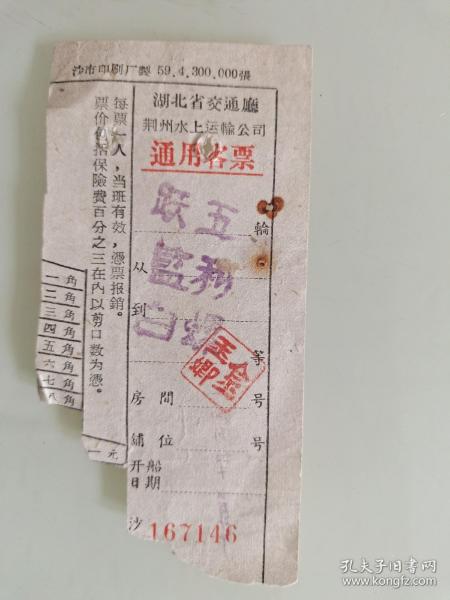 沙市印刷厂製 59.4.300.000張
湖北省交通廳
荆州水上运輸公司
通用客票
跃五 輪
从 監利
到 白螺 等
房間 号
舖位 号
开船
日期
沙 167146
每票一人，当班有效，憑票报銷。
票价包括保險費百分之三在内以剪口数为憑。
一角
二角
三角
四角
五角
六角
七角
八角
一元
孔夫子旧书网
www.kongfz.com